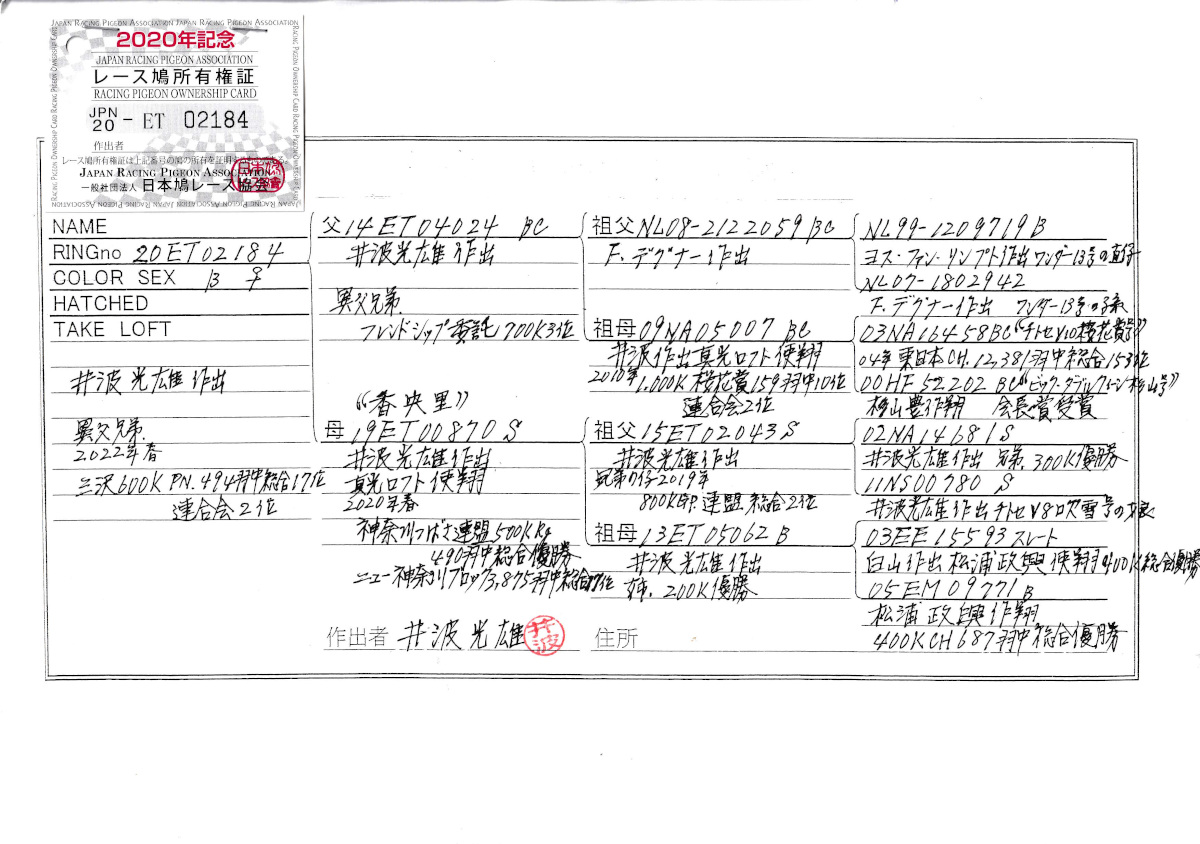 JAPAN RACING PIGEON ASSOCIATION JAPAN RACING PIGEON ASSOCIATION
2020年記念
JAPAN RACING PIGEON ASSOCIATION
レース鳩所有権証
RACING PIGEON OWNERSHIP CARD
JPN 20 - ET 02184
作出者
レース鳩所有権証は上記番号の鳩の所有を証明するものである。
JAPAN RACING PIGEON ASSOCIATION
一般社団法人 日本鳩レース協会
NAME
RINGno 20ET02184
COLOR SEX B ♀
HATCHED
TAKE LOFT
井波光雄作出
異父兄弟
2022年春
三沢600K PN.494羽中総合17位
連合会2位
父14ET04024 BC
井波光雄作出
異父兄弟
フレンドシップ委託700K3位
《香央里》
母19ET00870 S
井波光雄作出
真光ロフト使翔
2020年春
神奈川つばさ連盟500K Rg
490羽中総合優勝
ニュー神奈川ブロック3,875羽中総合17位
作出者 井波光雄
井波
祖父NL08-2122059 BC
F.デグナー作出
祖母09NA05007 BC
井波作出真光ロフト使翔
2010年
1,000K桜花賞159羽中10位
連合会2位
祖父15ET02043 S
井波光雄作出
兄弟の仔2019年
800KGP.連盟総合2位
祖母13ET05062 B
井波光雄作出
姉.200K優勝
住所
NL99-1209719 B
ヨス・ファン・リンプト作出ワンダー13号の直仔
NL07-1802942
F.デグナー作出 ワンダー13号の孫
03NA16458BC《チトセV10桜花賞号》
04年東日本CH.12,381羽中総合153位
00HF52202 BC《ビック・タブルクイーン杉山号》
杉山豊作翔 会長賞受賞
02NA14681S
井波光雄作出 兄弟.300K優勝
11NS00780 S
井波光雄作出チトセV8吹雪号の娘
03EE15593スレート
白山作出松浦政興使翔400K総合優勝
05EM09771B
松浦政興作翔
400KCH687羽中総合優勝